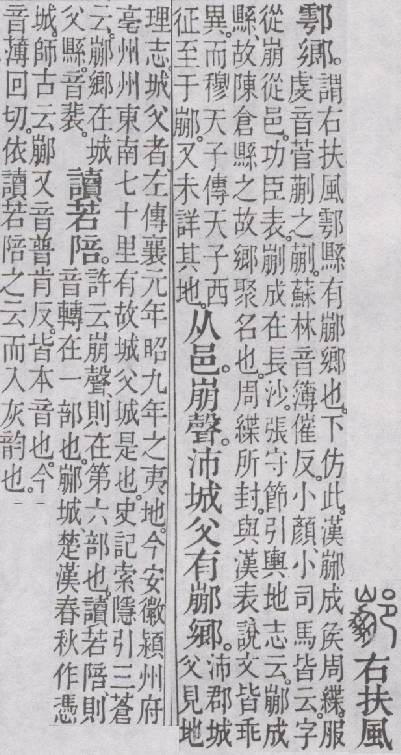 䣙右扶風
鄠鄉。謂右扶風鄠縣有䣙鄉也。下仿此。漢䣙成矦周緤。服
虔音菅蒯之蒯。蘇林音簿催反。小顏、小司馬皆云。字
從崩從邑。功臣表。䣙成在長沙。張守節引輿地志云。䣙成
縣、故陳倉縣之故鄉聚名也。周緤所封。與漢表說文皆乖
異。而穆天子傳天子西
征至于䣙。又未詳其地。
从邑。崩聲。沛城父有䣙鄉。
沛郡城
父見地
理志。城父者、左傳襄元年昭九年之夷地。今安徽潁州府
亳州州東南七十里有故城父城是也。史記索隱引三蒼
云。䣙鄉在城
父縣。音裴。
讀若陪。
許云崩聲。則在第六部也。讀若陪。則
音轉在一部也。䣙城楚漢春秋作憑
城。師古云䣙又音普肯反。皆本音也。今一
音薄回切。依讀若陪之云而入灰韵也。